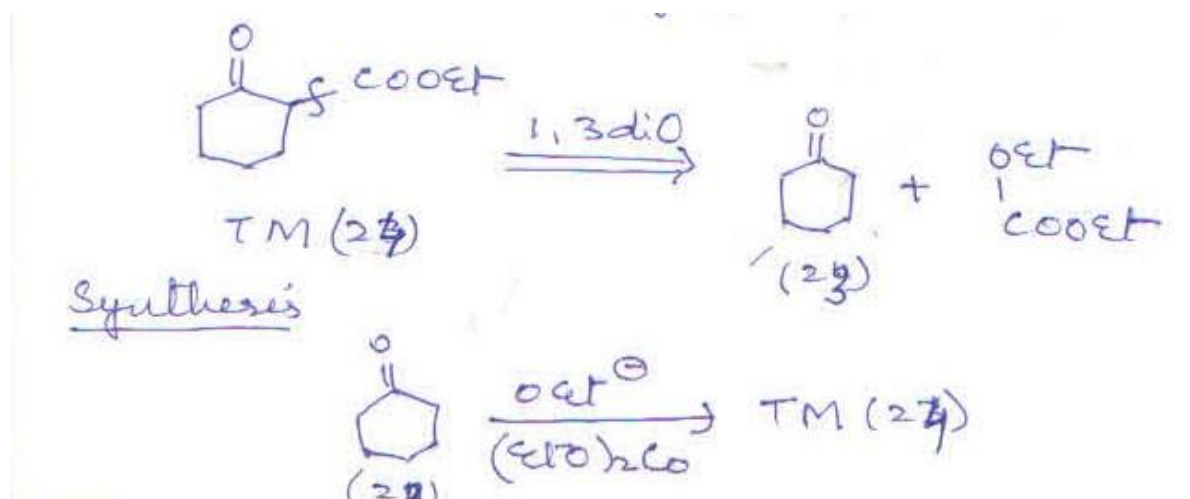 O
COOEt
1,3 diO
O
+
OEt
COOEt
TM (24)
(23)
Synthesis
O
OEt⊖
(EtO)2CO
TM (24)